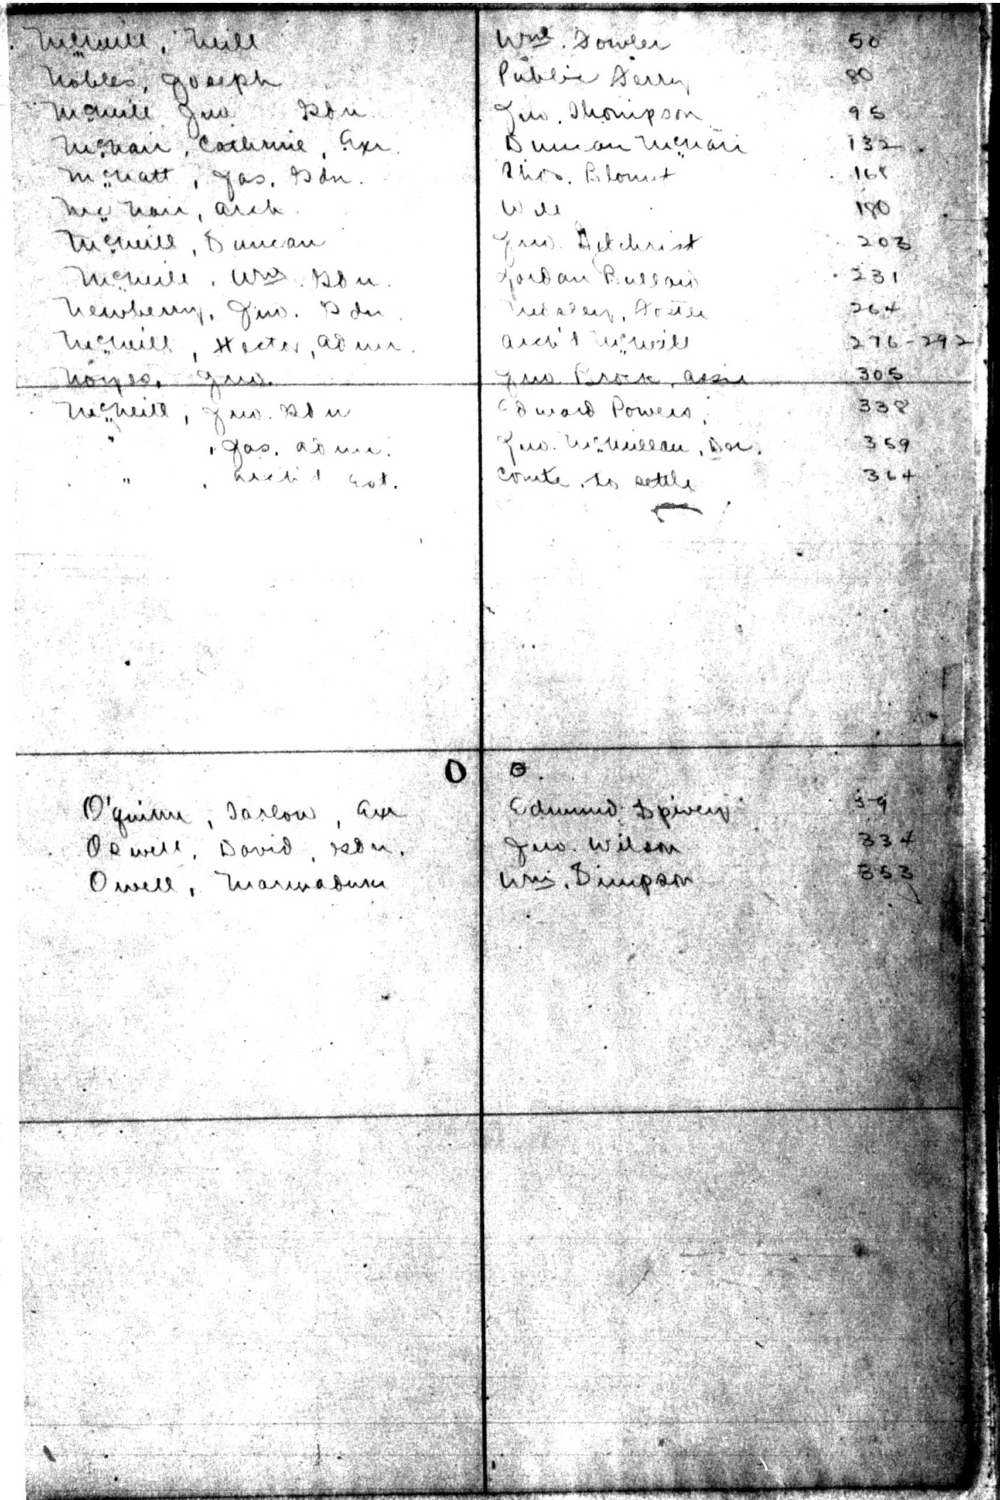 McNeill, Neill Wm. Fowler 50
Nobles, Joseph Public Ferry 80
McNeill Jno Gdn. Jno. Thompson 95
McNair, Catherine, Exr. Duncan McNair 132
McNatt, Jas. Gdn. Thos. Blount 168
McNair, Arch. Will 180
McNeill, Duncan Jno. Gilchrist 203
McNeill, Wm. Gdn. Jordan Bullard 231
Newberry, Jno. Gdn. 264
McNeill, Hector, Admr. Arch'd McNeill 276-292
Noyes, Jno. Jno Brock, assn 305
McNeill, Jno. Gdn Edward Powers, 338
" , Jas. Admr. Jno. McMillan, 359
" , Arch'd Est. Comte. to settle 364
O O.
O'quinn, Tarlow, Exr Edmund Spivey 59
Oswell, David, Gdn. Jno. Wilson 334
Owell, Marmaduke Wm. Simpson 353